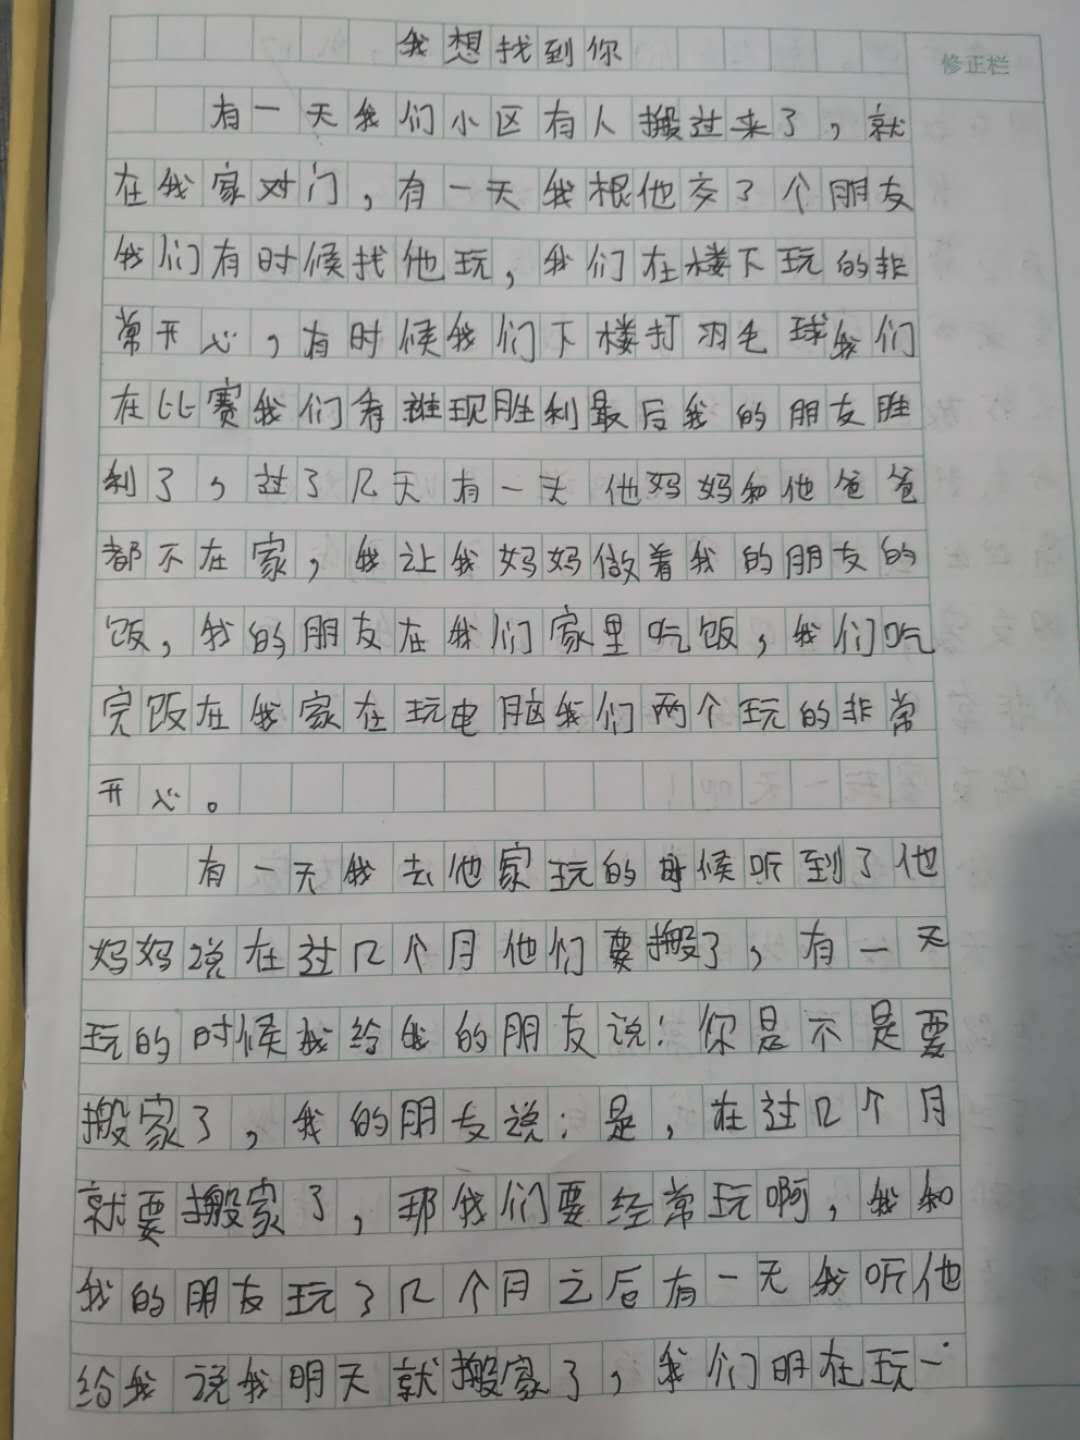 我想找到你
修正栏
有一天我们小区有人搬过来了，就
在我家对门，有一天我根他交了个朋友
我们有时候找他玩，我们在楼下玩的非
常开心，有时候我们下楼打羽毛球我们
在比赛我们看谁现胜利最后我的朋友胜
利了，过了几天有一天他妈妈和他爸爸
都不在家，我让我妈妈做着我的朋友的
饭，我的朋友在我们家里吃饭，我们吃
完饭在我家在玩电脑我们两个玩的非常
开心。
有一天我去他家玩的时候听到了他
妈妈说在过几个月他们要搬了，有一天
玩的时候我给我的朋友说：你是不是要
搬家了，我的朋友说：是，在过几个月
就要搬家了，那我们要经常玩啊，我和
我的朋友玩了几个月之后有一天我听他
给我说我明天就搬家了，我们明在玩一